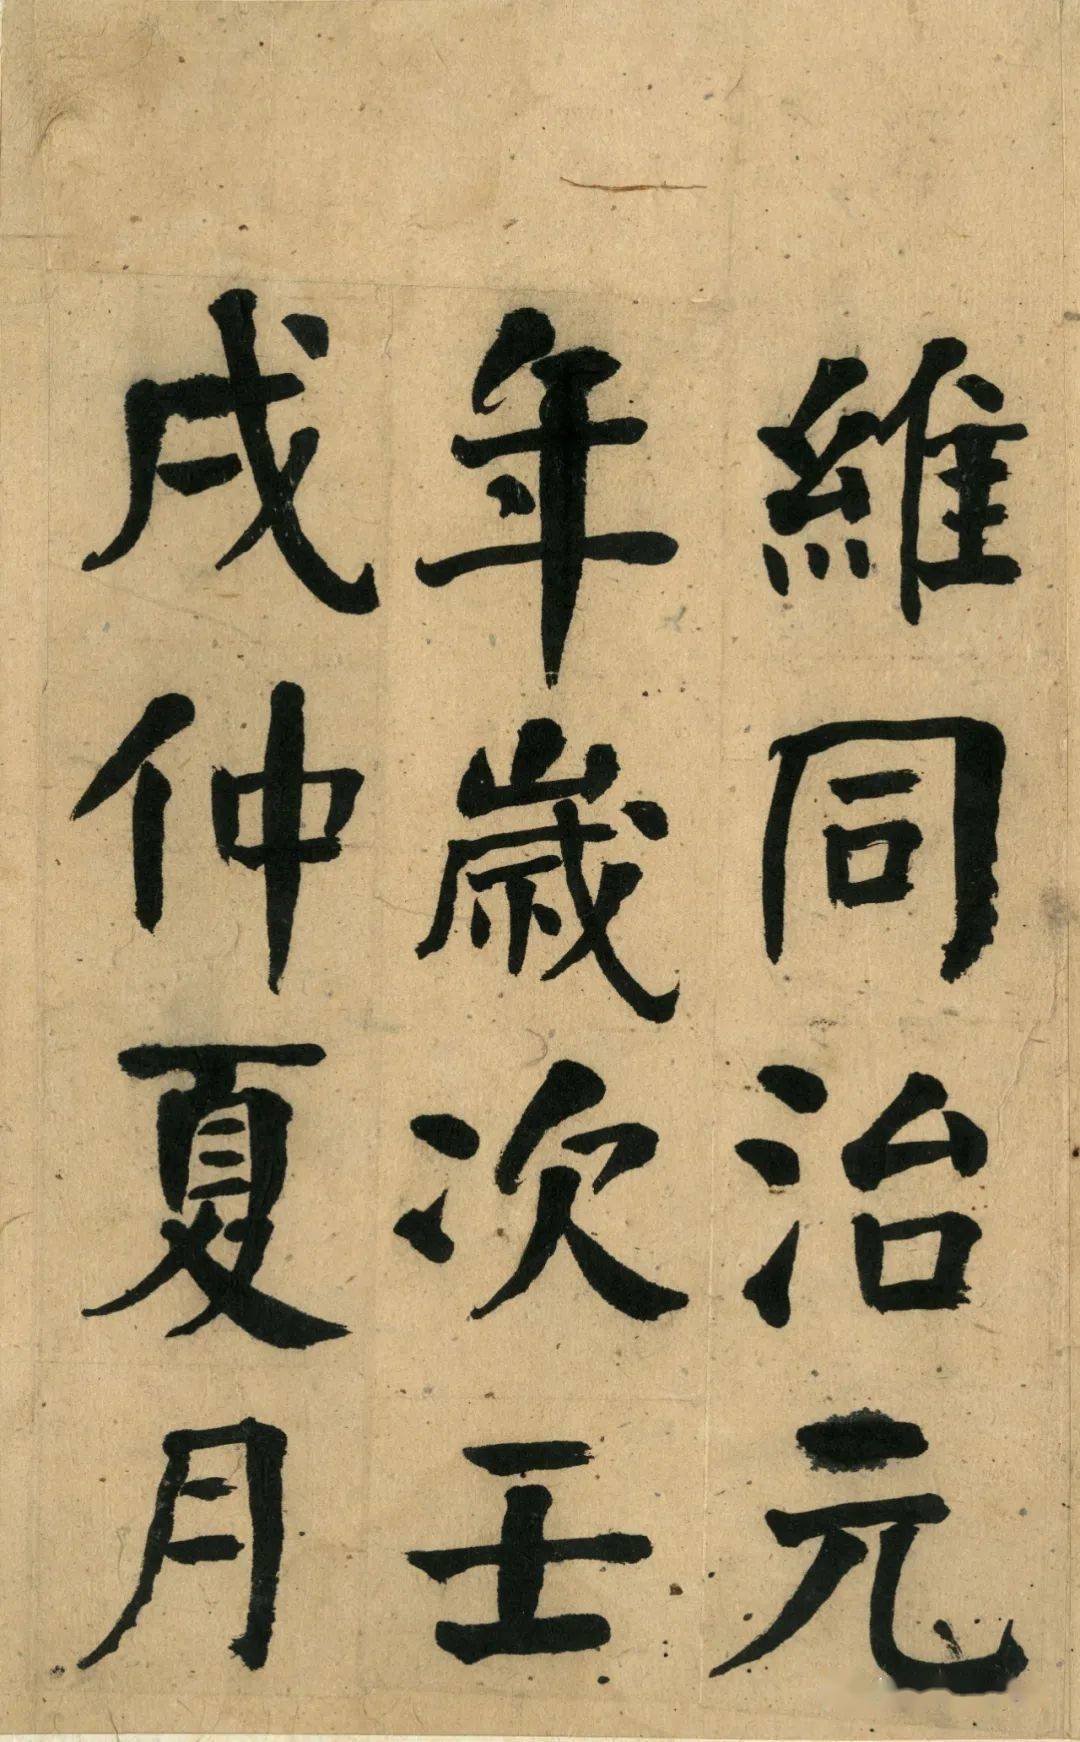 維同治元
年歲次壬
戌仲夏月